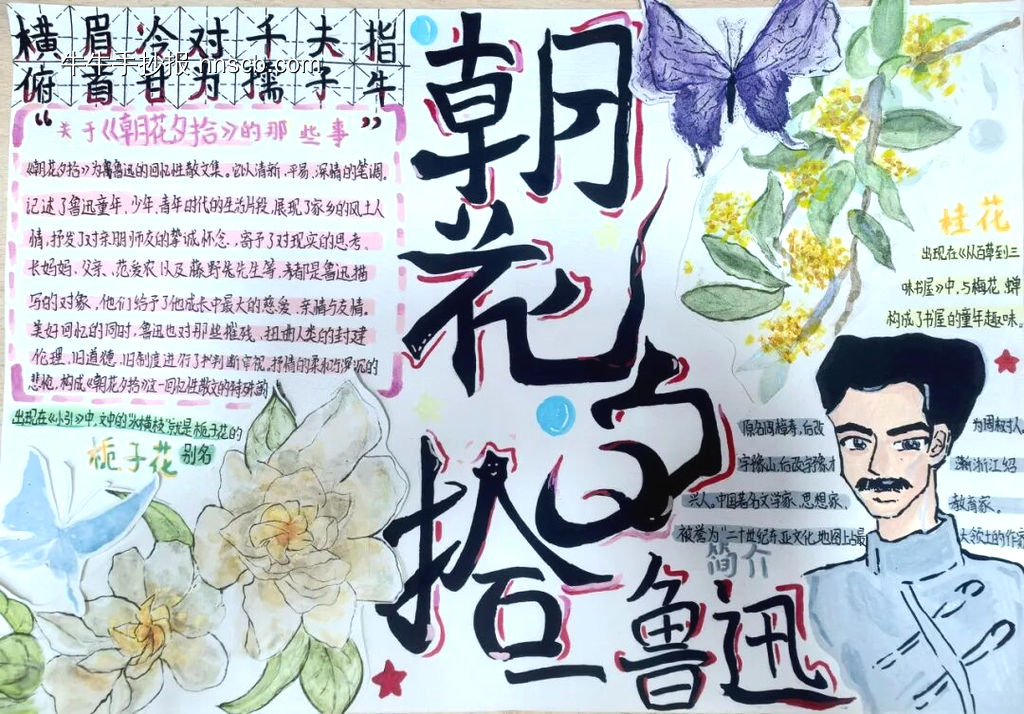 横眉冷对千夫指
俯首甘为孺子牛
牛牛手抄报 nnscb.com
“关于《朝花夕拾》的那些事”
《朝花夕拾》为鲁迅的回忆性散文集。它以清新、平易、深情的笔调。
记述了鲁迅童年、少年、青年时代的生活片段,展现了家乡的风土人
情,抒发了对亲朋师友的挚诚怀念,寄予了对现实的思考、
长妈妈、父亲、范爱农以及藤野先生等,都是鲁迅描
写的对象,他们给予了他成长中最大的慈爱、亲情与友情。
美好回忆的同时,鲁迅也对那些摧残、扭曲人类的封建
伦理、旧道德、旧制度进行了批判审视,抒情的柔和与深沉的
悲怆,构成《朝花夕拾》这一回忆性散文的特殊韵
出现在《小引》中,文中的“水横枝”就是栀子花的
别名
栀子花
朝花夕拾
鲁迅
桂花
出现在《从百草到三
味书屋》中,与梅花、蝉
构成了书屋的童年趣味。
原名周樟寿,后改 为周树人,
字豫山,后改字豫才 浙江绍
兴人。中国著名文学家、思想家、 教育家。
被誉为“二十世纪东亚文化地图上最 大领土的作家
简介